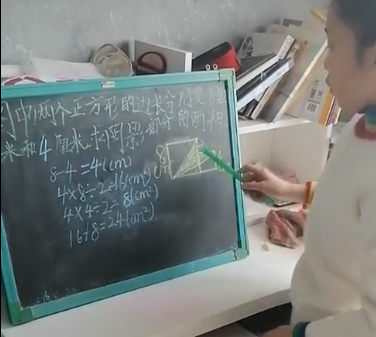 图中两个正方形的边长分别是8厘
米和4厘米,求阴影部分的面积
8-4=4(cm)
4×8÷2=16(cm²)
4×4÷2=8(cm²)
16+8=24(cm²)
8